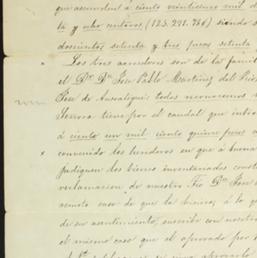 que ascendent á ciento veintiunos mil d
ta y ocho centavos (123.221.736) siendo s
doscientos setenta y tres pesos setenta
Los tres acreedores son de la famil
el Dr. Dn. José Pablo Martínez del Río
José de Ansoategui: todos reconocemos
Señora tiene por el caudal que intro
á ciento un mil ciento quince pesos
convenido los herederos en que á buena
judiquen los bienes inventariados
reclamacion de nuestro Tio Dn. José
remoto caso de que la hubiera, á la q
de su asentimiento, suscribe con nosotro
el mismo caso que el aprobado por